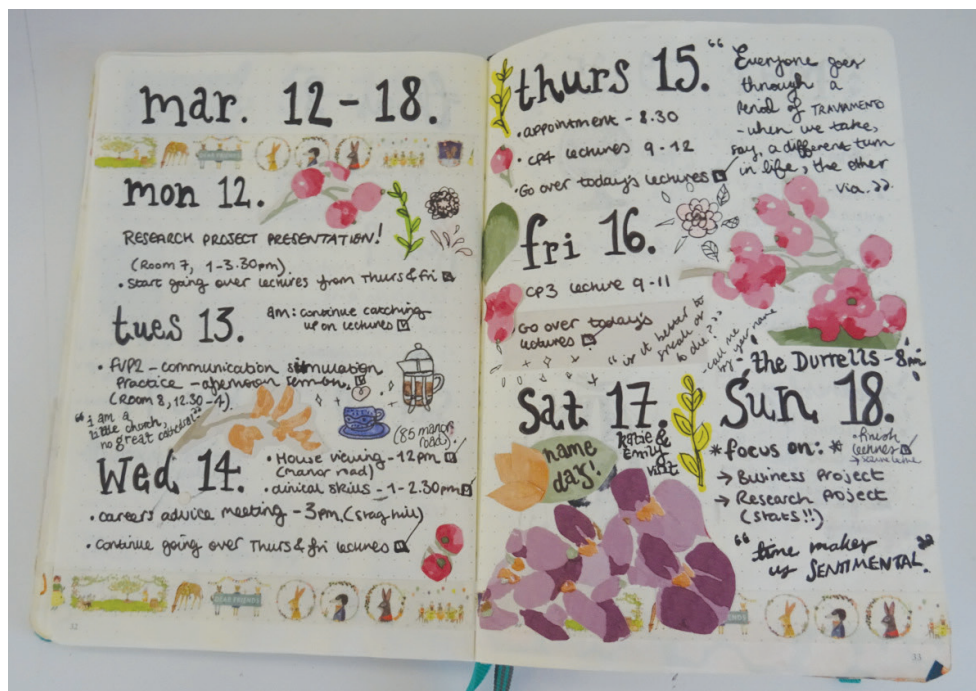 mar. 12-18.
DEAR FRIENDS
mon 12.
RESEARCH PROJECT PRESENTATION!
(Room 7, 1-3.30pm)
• start going over lectures from Thurs & fri
tues 13.
am: continue catching
up on lectures
• FVP2 - communication simulation
Practice - afternoon session.
(Room 8, 12.30-4)
"i am a
little church,
no great cathedral"
(85 manor
road)
Wed 14.
• House viewing - 12pm
(manor road)
• clinical skills - 1-2.30pm
• careers advice meeting - 3pm, (stag hill)
• continue going over Thurs & fri lectures
DEAR FRIENDS
32
thurs 15.
• appointment - 8.30
• CP4 lectures 9-12
• Go over today's lectures
"Everyone goes
through a
period of TRAVIAMENTO
- when we take,
say, a different turn
in life, the other
via."
fri 16.
CP3 lecture 9-11
Go over today's
lectures
"is it better to
speak or
to die?"
- call me
by your name
- the Durrells - 8pm
Sat 17.
name
day!
Katie &
Emily
visit
Sun 18.
* focus on: *
finish
lectures
→ Business Project
→ Research Project
(stats!!)
"time makes
us SENTIMENTAL."
33